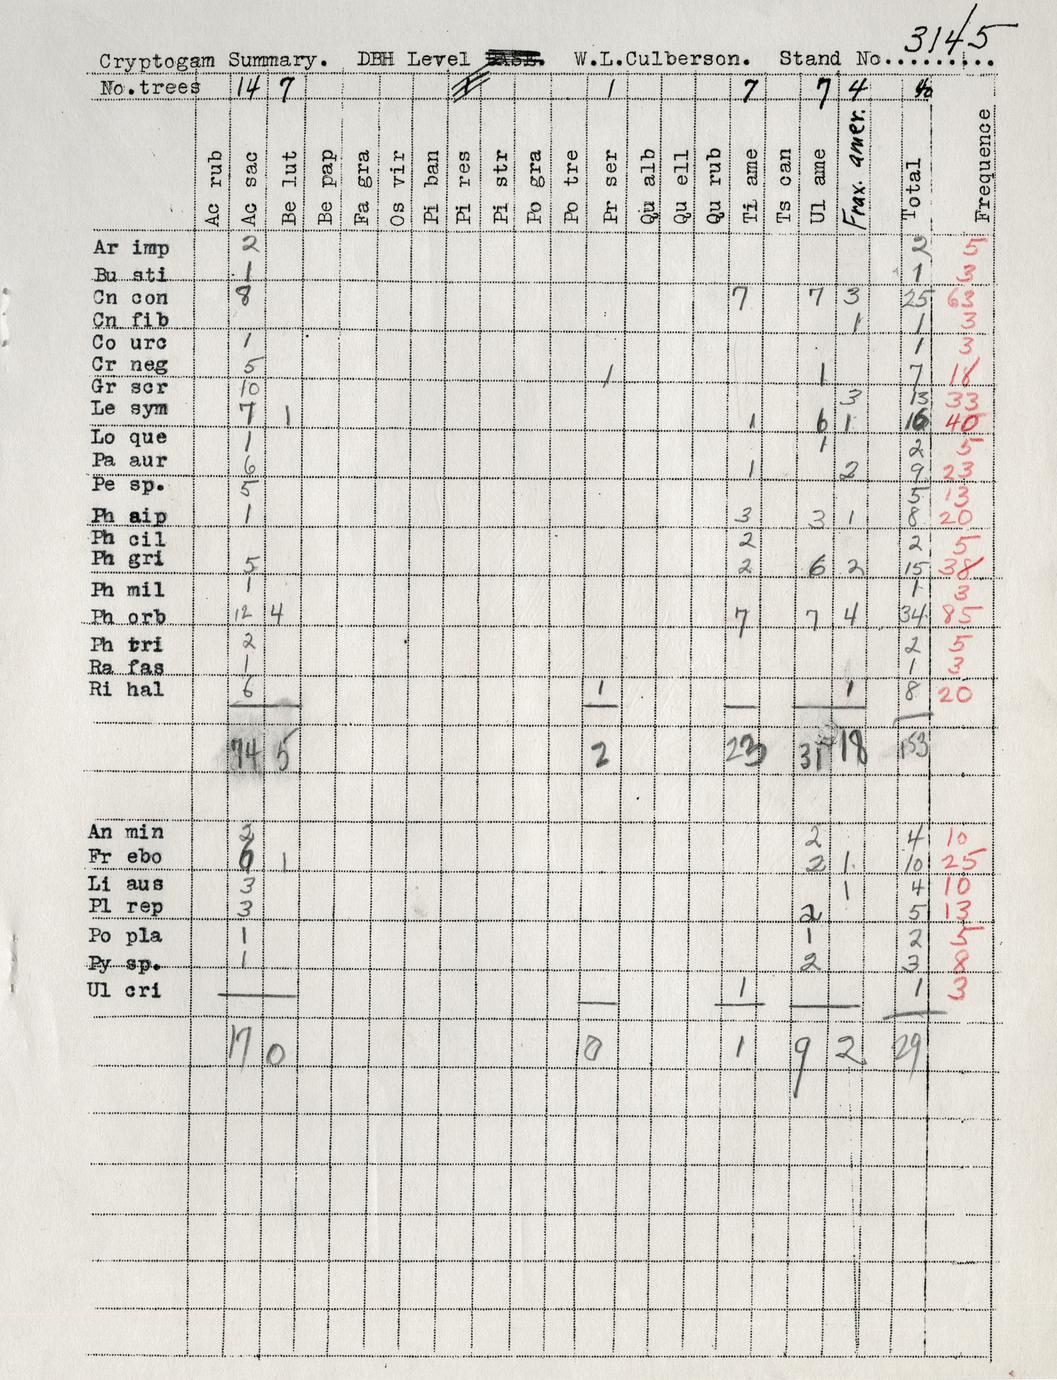 3145
Cryptogam Summary. DBH Level W.L.Culberson. Stand No..........
No.trees 14 7 1 7 7 4 40
Ac rub Ac sac Be lut Be pap Fa gra Os vir Pi ban Pi res Pi str Po gra Po tre Pr ser Qu alb Qu ell Qu rub Ti ame Ts can Ul ame Frax. amer. Total Frequence
Ar imp 2 2 5
Bu sti 1 1 3
Cn con 8 7 7 3 25 63
Cn fib 1 1 3
Co urc 1 1 3
Cr neg 5 1 1 7 18
Gr scr 10 3 13 33
Le sym 7 1 1 6 1 16 40
Lo que 1 1 2 5
Pa aur 6 1 2 9 23
Pe sp. 5 5 13
Ph aip 1 3 3 1 8 20
Ph cil 2 2 5
Ph gri 5 2 6 2 15 38
Ph mil 1 1 3
Ph orb 12 4 7 7 4 34 85
Ph tri 2 2 5
Ra fas 1 1 3
Ri hal 6 1 1 8 20
74 5 2 23 31 18 153
An min 2 2 4 10
Fr ebo 1 2 1 10 25
Li aus 3 1 4 10
Pl rep 3 2 5 13
Po pla 1 1 2 5
Py sp. 1 2 3 8
Ul cri 1 1 3
17 0 0 1 9 2 29